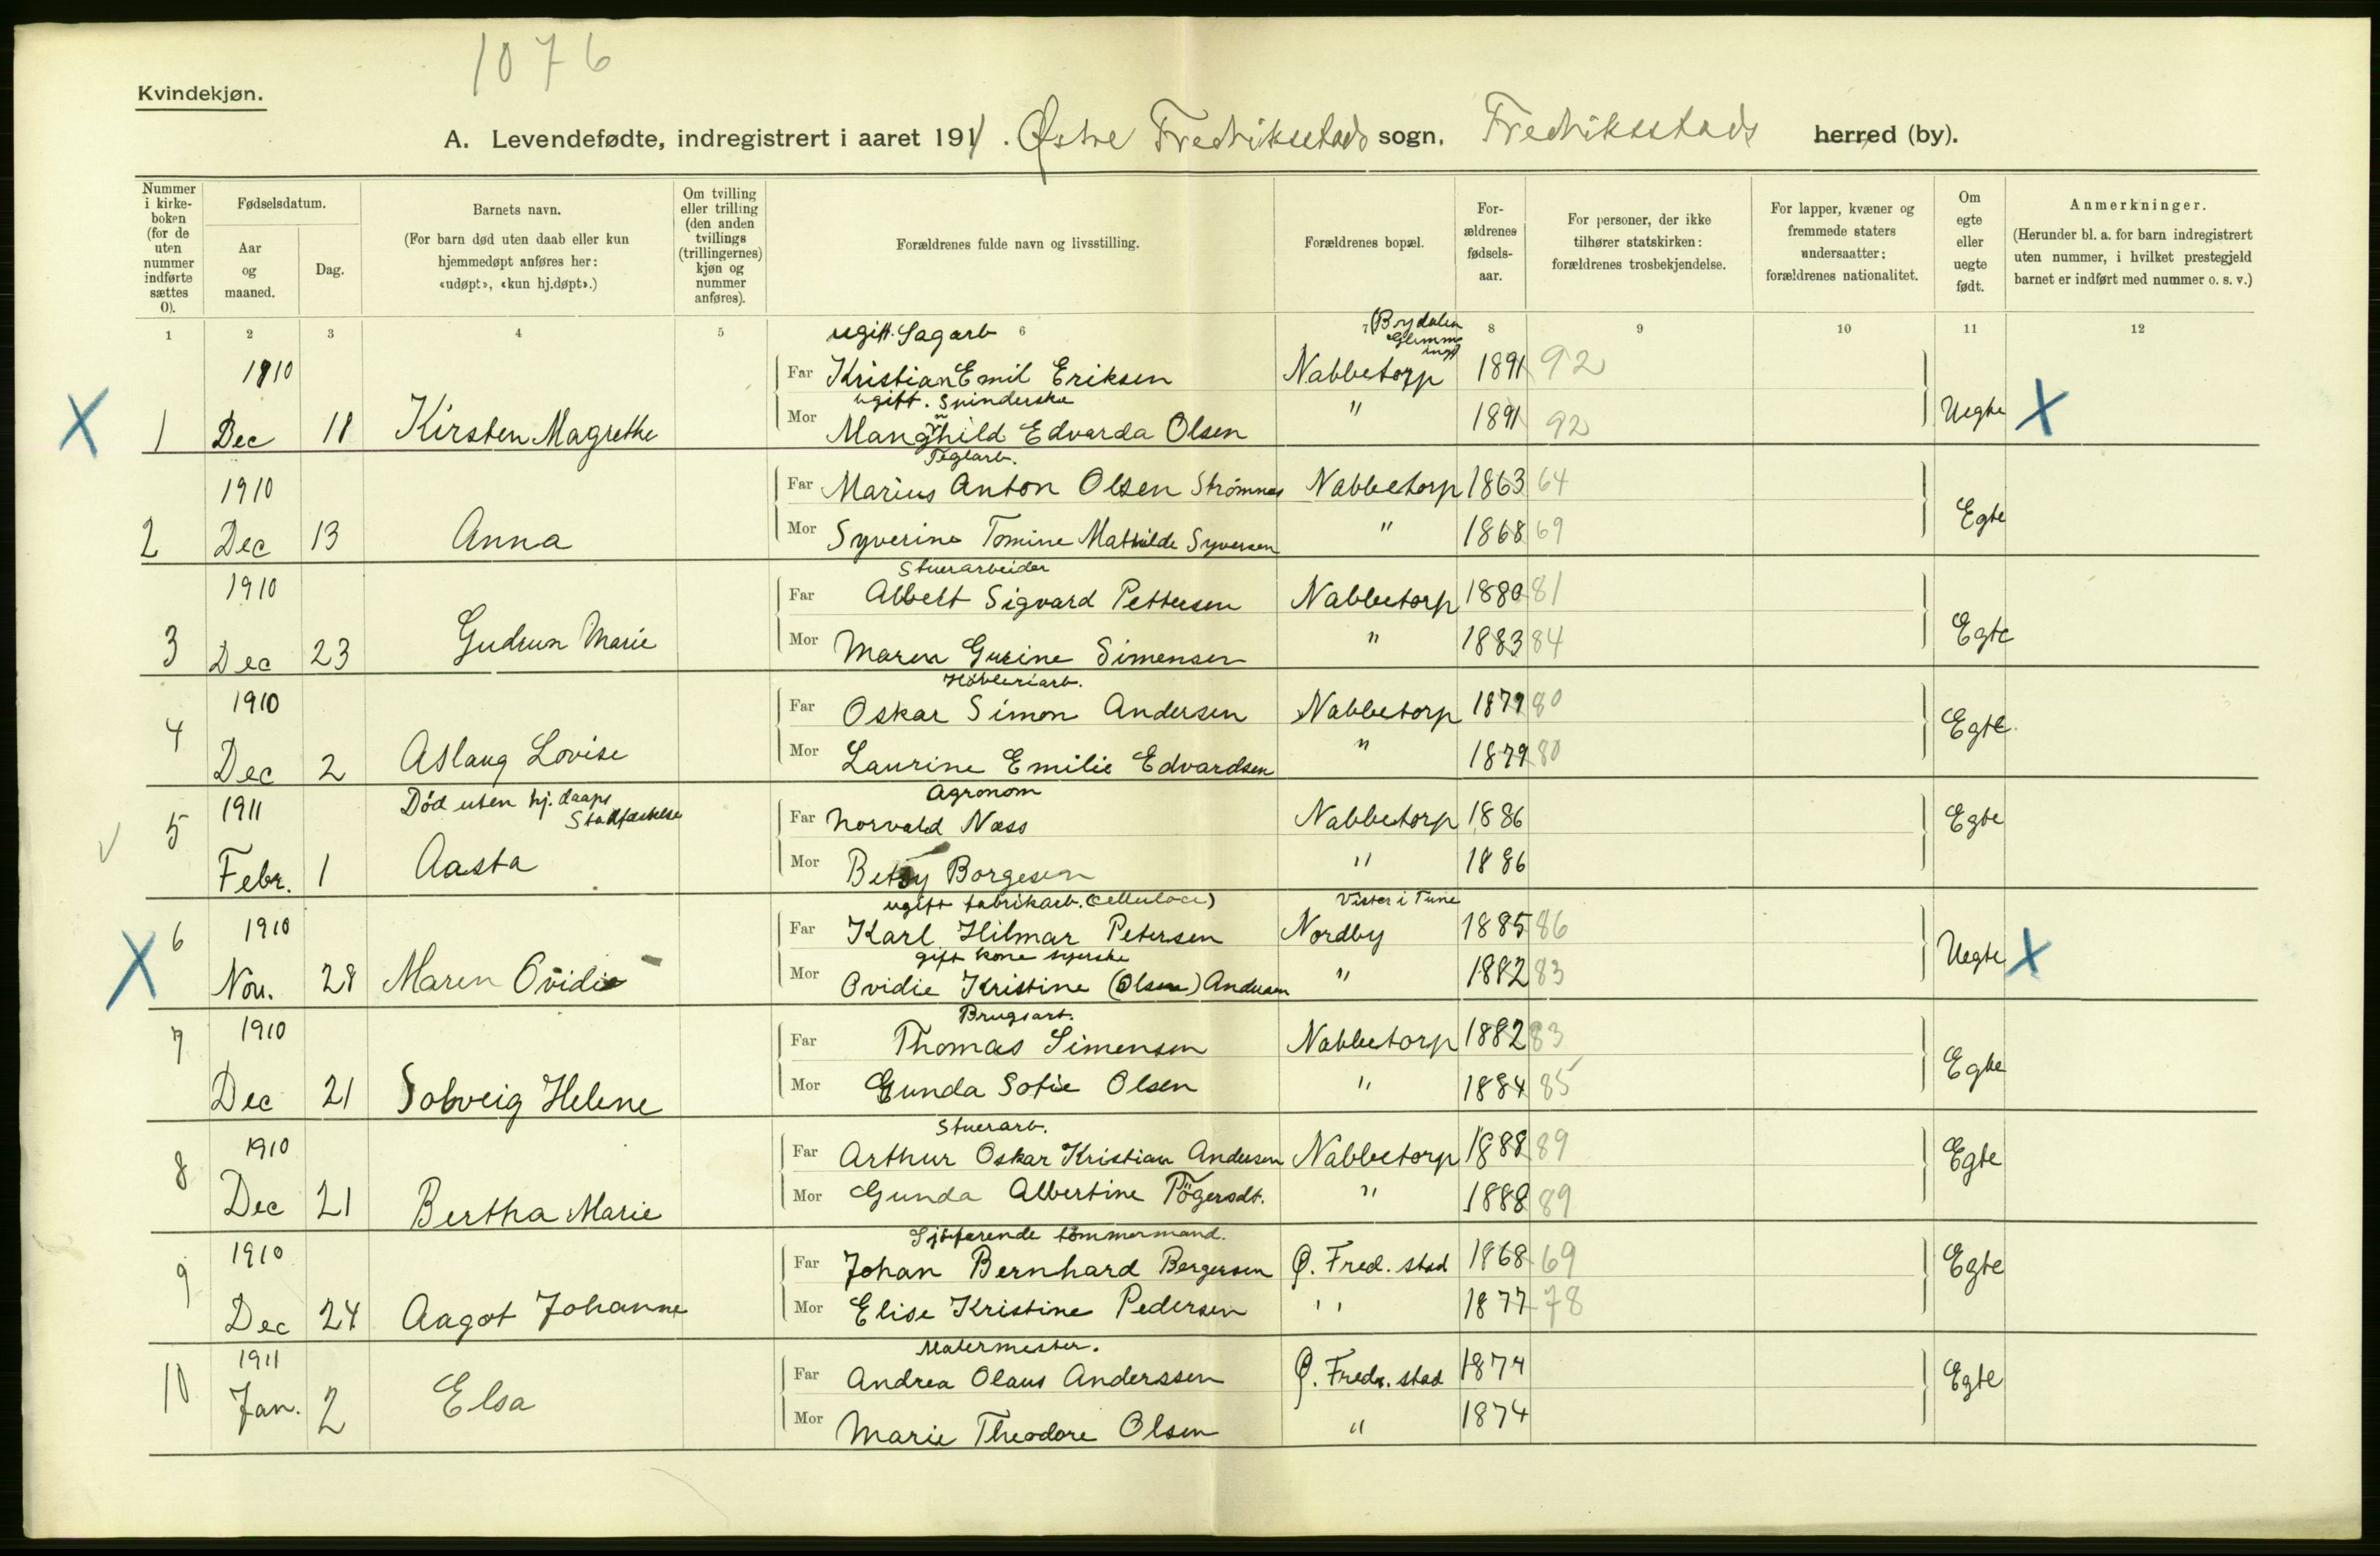 1076
Kvindekjøn.
A. Levendefødte, indregistrert i aaret 1911. Østre Fredriksstads sogn. Fredriksstads herred (by).
Nummer i kirkeboken (for de uten nummer indførte sættes 0).
Fødselsdatum.
Aar og maaned.
Dag.
Barnets navn.
(For barn død uten daab eller kun hjemmedøpt anføres her: «udøpt», «kun hj.døpt».)
Om tvilling eller trilling (den anden tvillings (trillingernes) kjøn og nummer anføres).
Forældrenes fulde navn og livsstilling.
Forældrenes bopæl.
For-ældrenes fødsels-aar.
For personer, der ikke tilhører statskirken: forældrenes trosbekjendelse.
For lapper, kvæner og fremmede staters undersaatter: forældrenes nationalitet.
Om egte eller uegte født.
Anmerkninger.
(Herunder bl. a. for barn indregistrert uten nummer, i hvilket prestegjeld barnet er indført med nummer o. s. v.)
1 2 3 4 5 6 7 8 9 10 11 12
ugift. Sagarb (Brydalen Glemminge
1910 Far Kristian Emil Eriksen Nabbetorp 1891 92
ugift. Spinderske
X 1 Dec 18 Kirsten Magrethe Mor Mangnhild Edvarda Olsen " 1891 92 Uegte X
Teglarb.
1910 Far Marius Anton Olsen Strømnes Nabbetorp 1863 64
2 Dec 13 Anna Mor Syverine Tomine Mathilde Syversen " 1868 69 Egte
Stuerarbeider
1910 Far Albert Sigvard Pettersen Nabbetorp 1880 81
3 Dec 23 Gudrun Marie Mor Maren Gurine Simensen " 1883 84 Egte
Høvleriarb.
1910 Far Oskar Simon Andersen Nabbetorp 1879 80
4 Dec 2 Aslaug Lovise Mor Laurine Emilie Edvardsen " 1879 80 Egte.
Død uten hj. daaps Stadfæstelse Agronom
1911 Far Norvald Næss Nabbetorp 1886
5 Febr. 1 Aasta Mor Betsy Borgesen " 1886 Egte
ugift fabrikarb. (cellulose) Vister i Tune
1910 Far Karl Hilmar Petersen Nordby 1885 86
gift kone syerske
X 6 Nov. 28 Maren Ovidie Mor Ovidie Kristine (Olsen) Andersen " 1882 83 Uegte X
Brugsarb.
1910 Far Thomas Simensen Nabbetorp 1882 83
7 Dec 21 Solveig Helene Mor Gunda Sofie Olsen " 1884 85 Egte
Stuerarb.
1910 Far Arthur Oskar Kristian Andersen Nabbetorp 1888 89
8 Dec 21 Bertha Marie Mor Gunda Albertine " 1888 89 Egte
Sjöfarende tömmermand.
1910 Far Johan Bernhard Bergersen Ø. Fred. stad 1868 69
9 Dec 24 Aagot Johanne Mor Elise Kristine Pedersen " 1877 78 Egte
Malermester.
1911 Far Andrea Olaus Anderssen Ø. Fredr. stad 1874
10 Jan. 2 Elsa Mor Marie Theodore Olsen " 1874 Egte